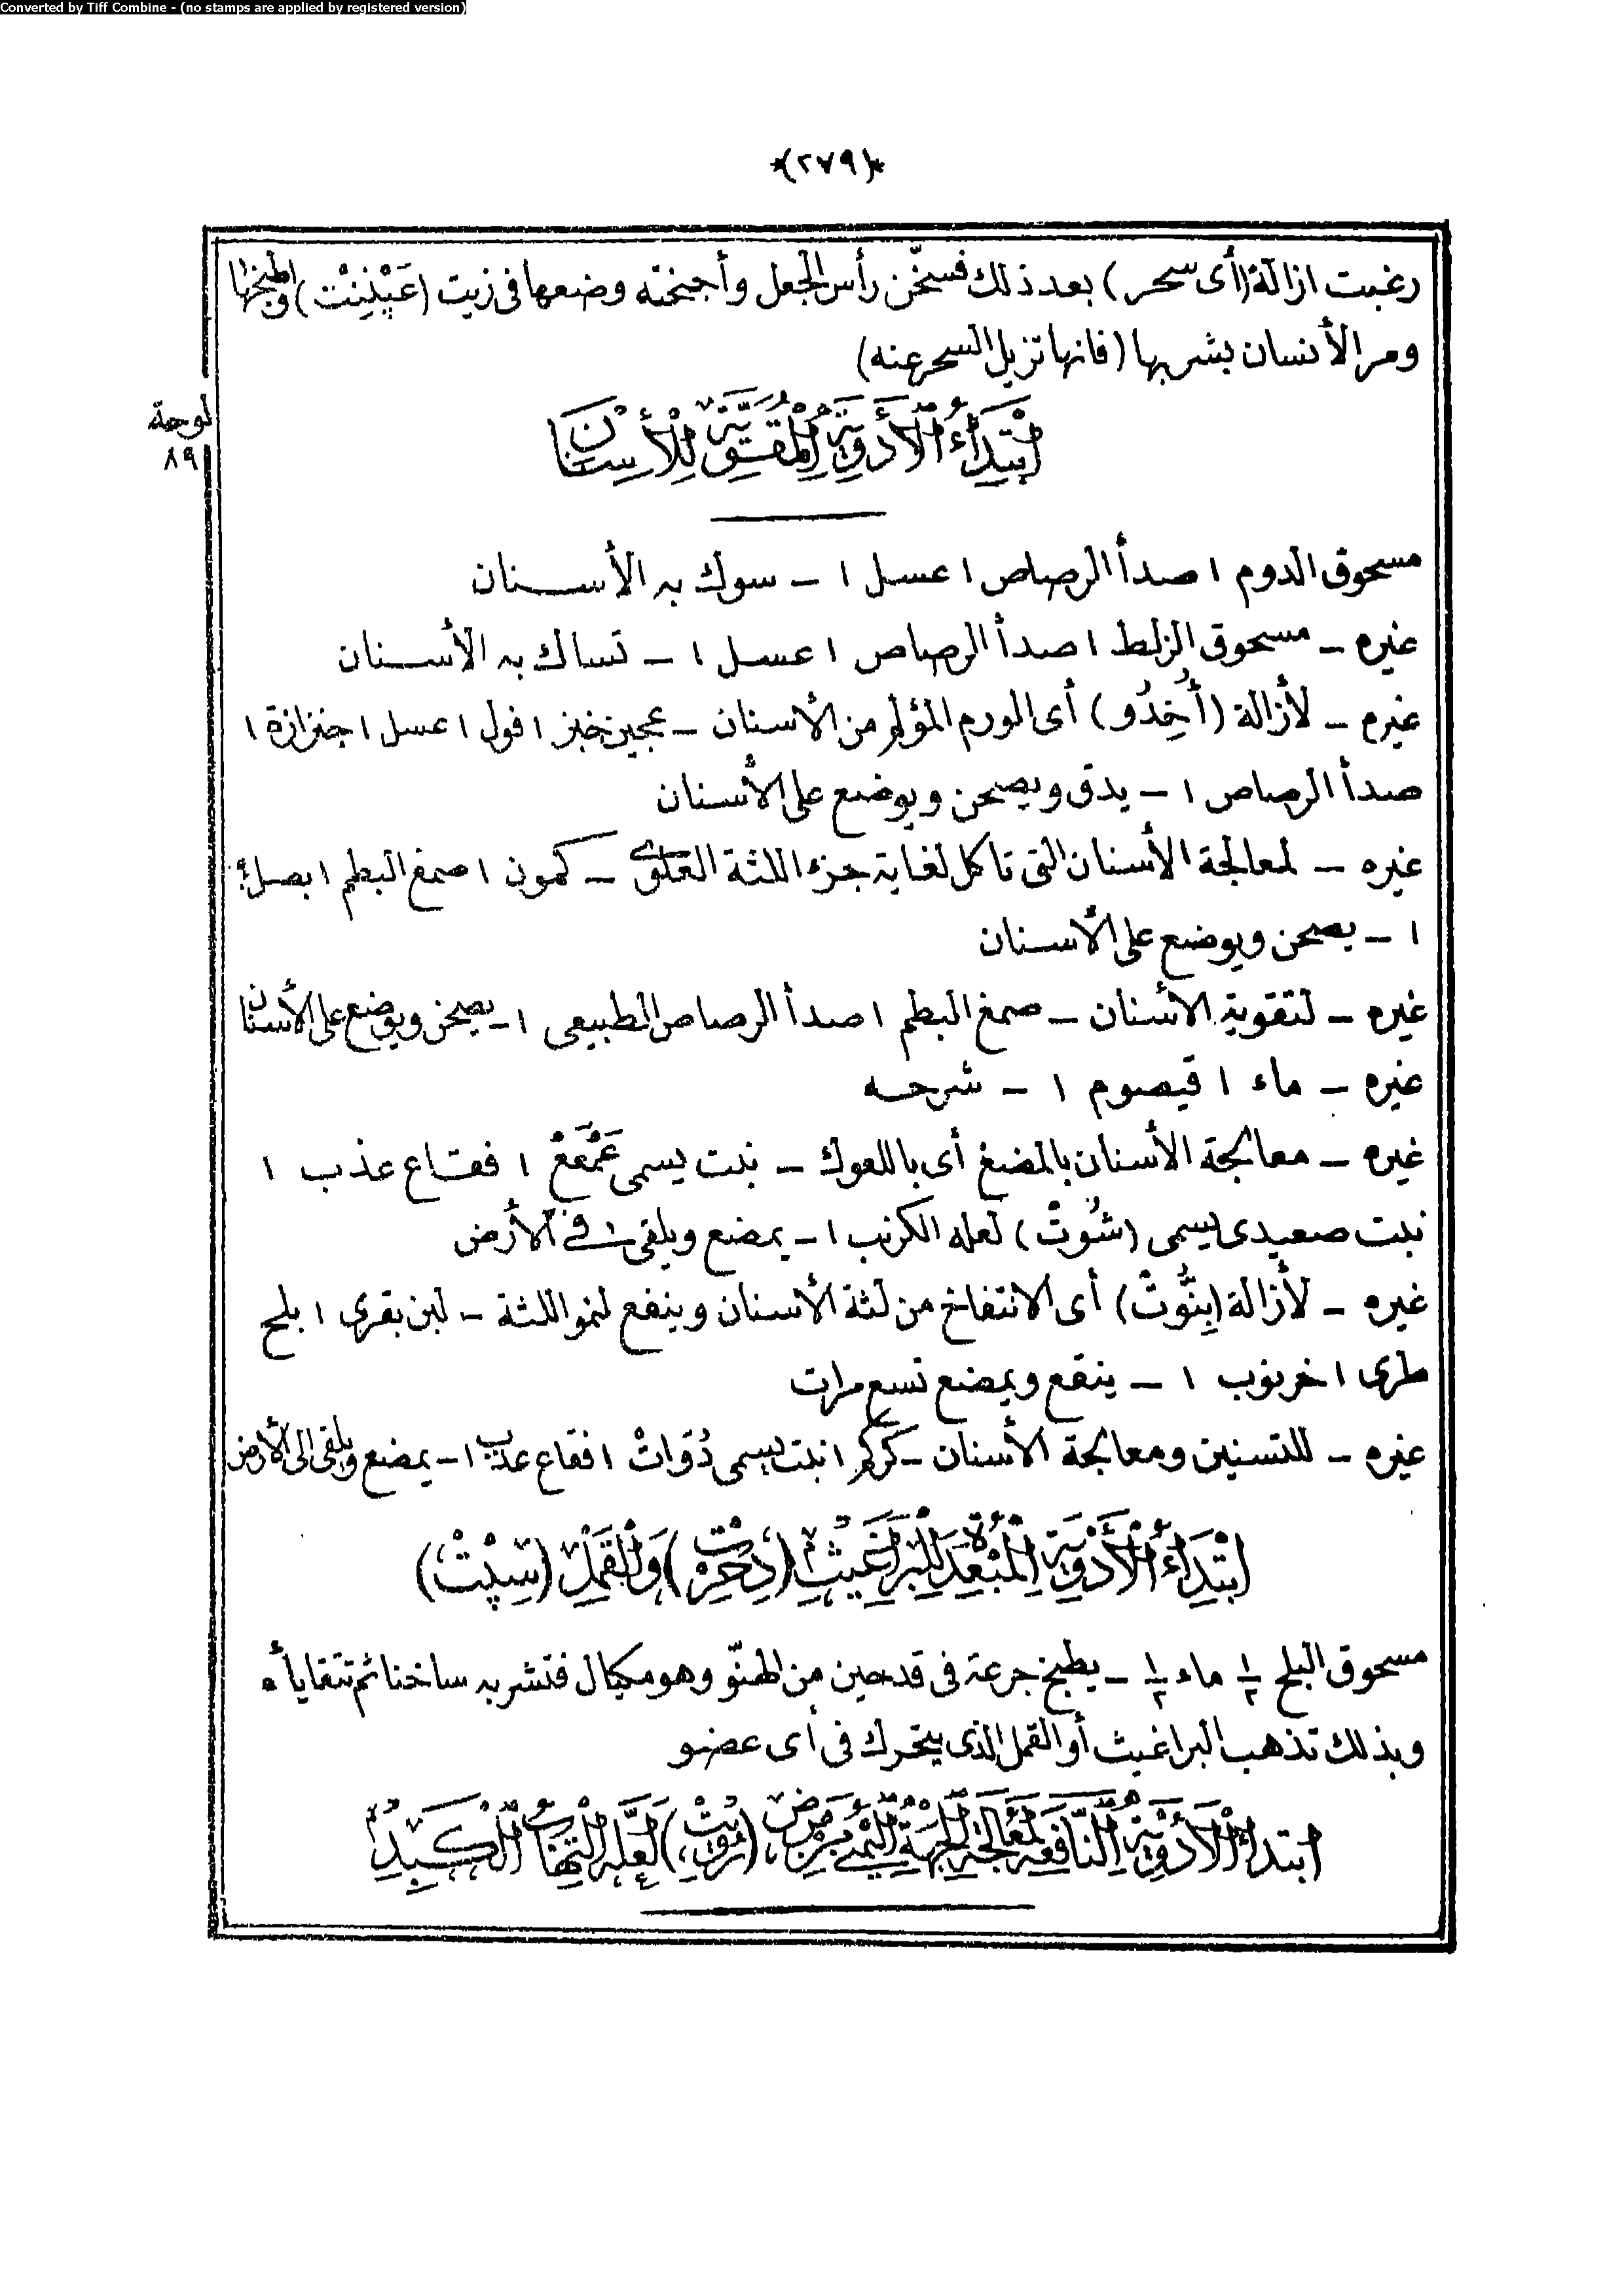 Converted by Tiff Combine - (no stamps are applied by registered version)
*(٢٧٩)*
رغبت ازالة (أى سحر) بعد ذلك فسخّن رأس الجعل وأجنحته وضعها فى زيت (عَپْنِنْتْ) واطبخها
ومر الأنسان بشربها (فانها تزيل السحر عنه)
لوحة
٨٩
اِبْتِدَاءُ الْأَدْوِيَةِ الْمُقَوِّيَةِ لِلْأَسْنَانِ
مسحوق الدوم ١ صدأ الرصاص ١ عسل ١ – سوك به الأسنان
غيره – مسحوق الزلط ١ صدأ الرصاص ١ عسل ١ – تساك به الأسنان
غيره – لأزالة (أُخِدُو) أى الورم المؤلم من الأسنان – عجين خبز ١ فول ١ عسل ١ جنزازة ١
صدأ الرصاص ١ – يدق ويصحن ويوضع على الأسنان
غيره – لمعالجة الأسنان التى تاكل لغاية جزء اللثة – كمون ١ صمغ البطم ١ بصل
١ – يصحن ويوضع على الأسنان
غيره – لتقوية الأسنان – صمغ البطم ١ صدأ الرصاص الطبيعى ١ – يصحن ويوضع على الأسنان
غيره – ماء ١ قيصوم ١ – شرحه
غيره – معالجة الأسنان بالمضغ أى باللعوك – نبت يسمى عَمْعَمْعْ ١ فقاع عذب ١
نبت صعيدى يسمى (شُوتْ) لعله الكرنب ١ – يمضع ويلقى فى الأرض
غيره – لأزالة (بِنُّوتْ) أى الانتفاخ من لثة الأسنان وينفع لنمو اللثة – لبن بقرى ١ بلح
طرى ١ خرنوب ١ – ينقع ويمضع تسع مرات
غيره – للتسنين ومعالجة الأسنان – كركم ١ نبت يسمى دُوَاتْ ١ فقاع عذب ١ – يمضع ويلقى الى الأرض
اِبْتِدَاءُ الْأَدْوِيَةِ الْمُبْعِدَةُ لِلْبَرَاغِيثِ (دِحْرِتْ) وَالْقَمْلِ (سِپْتْ)
مسحوق البلح ١/٢ ماء ١/٢ – يطبخ جرعة فى قدحين من الهنّو وهو مكيال فتشربه ساخنا ثم تتقايأه
وبذلك تذهب البراغيث أو القمل الذى يتحرك فى أى عضو
ابتداءُ الْأَدْوِيَةِ النَّافِعَةِ لِمُعَالَجَةِ الْجِهَةِ الْيُمْنَى مِنْ مَرَضِ (رُويْتْ) لَعَلَّهُ الْتِهَابُ الْكَبِدِ